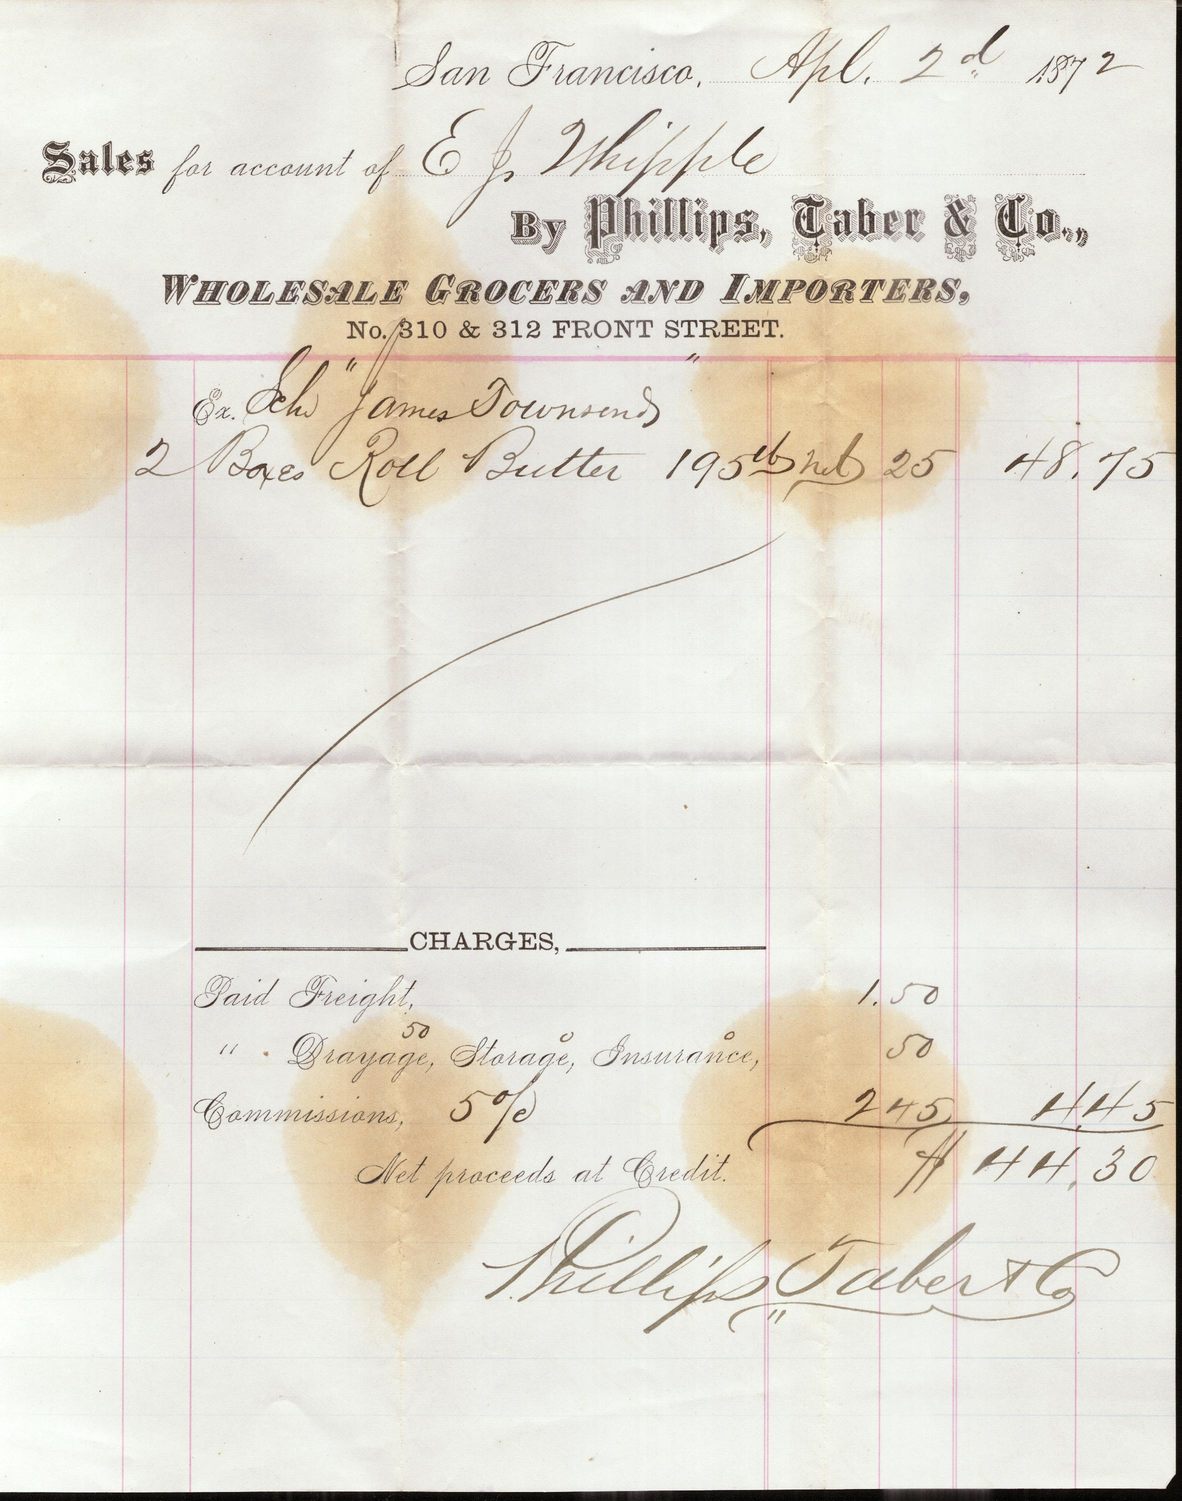 San Francisco, Apl. 2d 1872
Sales for account of E J. Whipple
By Phillips, Taber & Co.,
WHOLESALE GROCERS AND IMPORTERS,
No. 310 & 312 FRONT STREET.
Ex. Schr "James Townsend"
2 Boxes Roll Butter 195 lbs net 25 48.75
CHARGES,
Paid Freight, 1.50
50 0 0
" Drayage, Storage, Insurance, 50
Commissions, 5% 245 4.45
Net proceeds at Credit. $ 44.30
Phillips Taber & Co